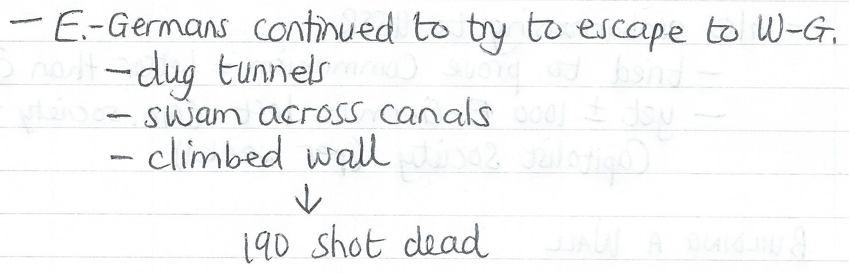 – E.-Germans continued to try to escape to W-G.
– dug tunnels
– swam across canals
– climbed wall
↓
190 shot dead